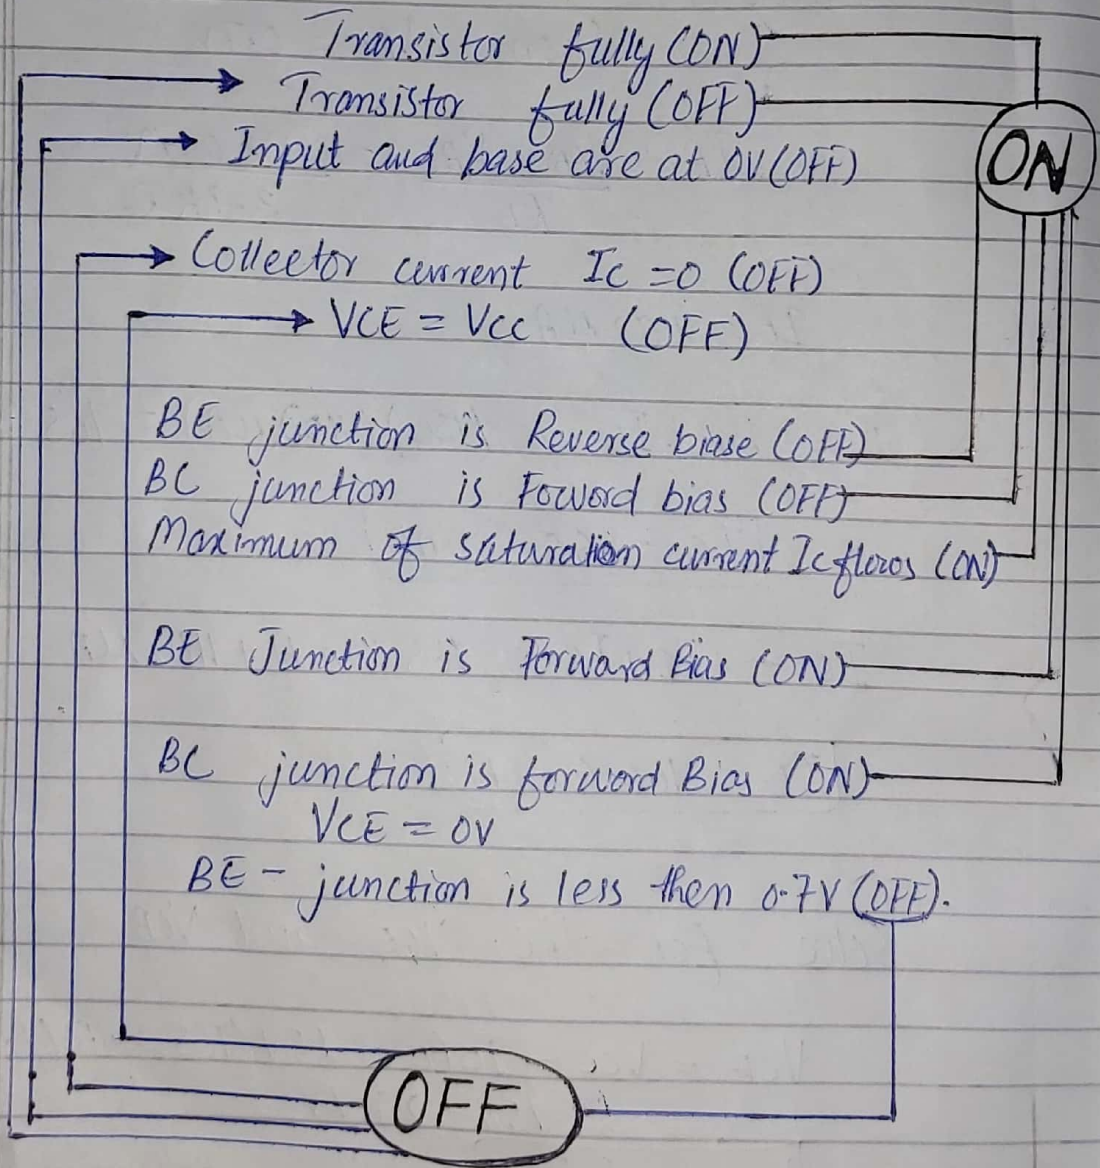 Transistor fully (ON)
Transistor fully (OFF)
ON
Input and base are at 0V (OFF)
Collector current Ic = 0 (OFF)
VCE = Vcc (OFF)
BE junction is Reverse biase (OFF)
BC junction is Foword bias (OFF)
Maximum of saturation current Ic flows (ON)
BE Junction is Forward Bias (ON)
BC junction is forword Bias (ON)
VCE = 0V
BE - junction is less then 0.7V (OFF).
OFF